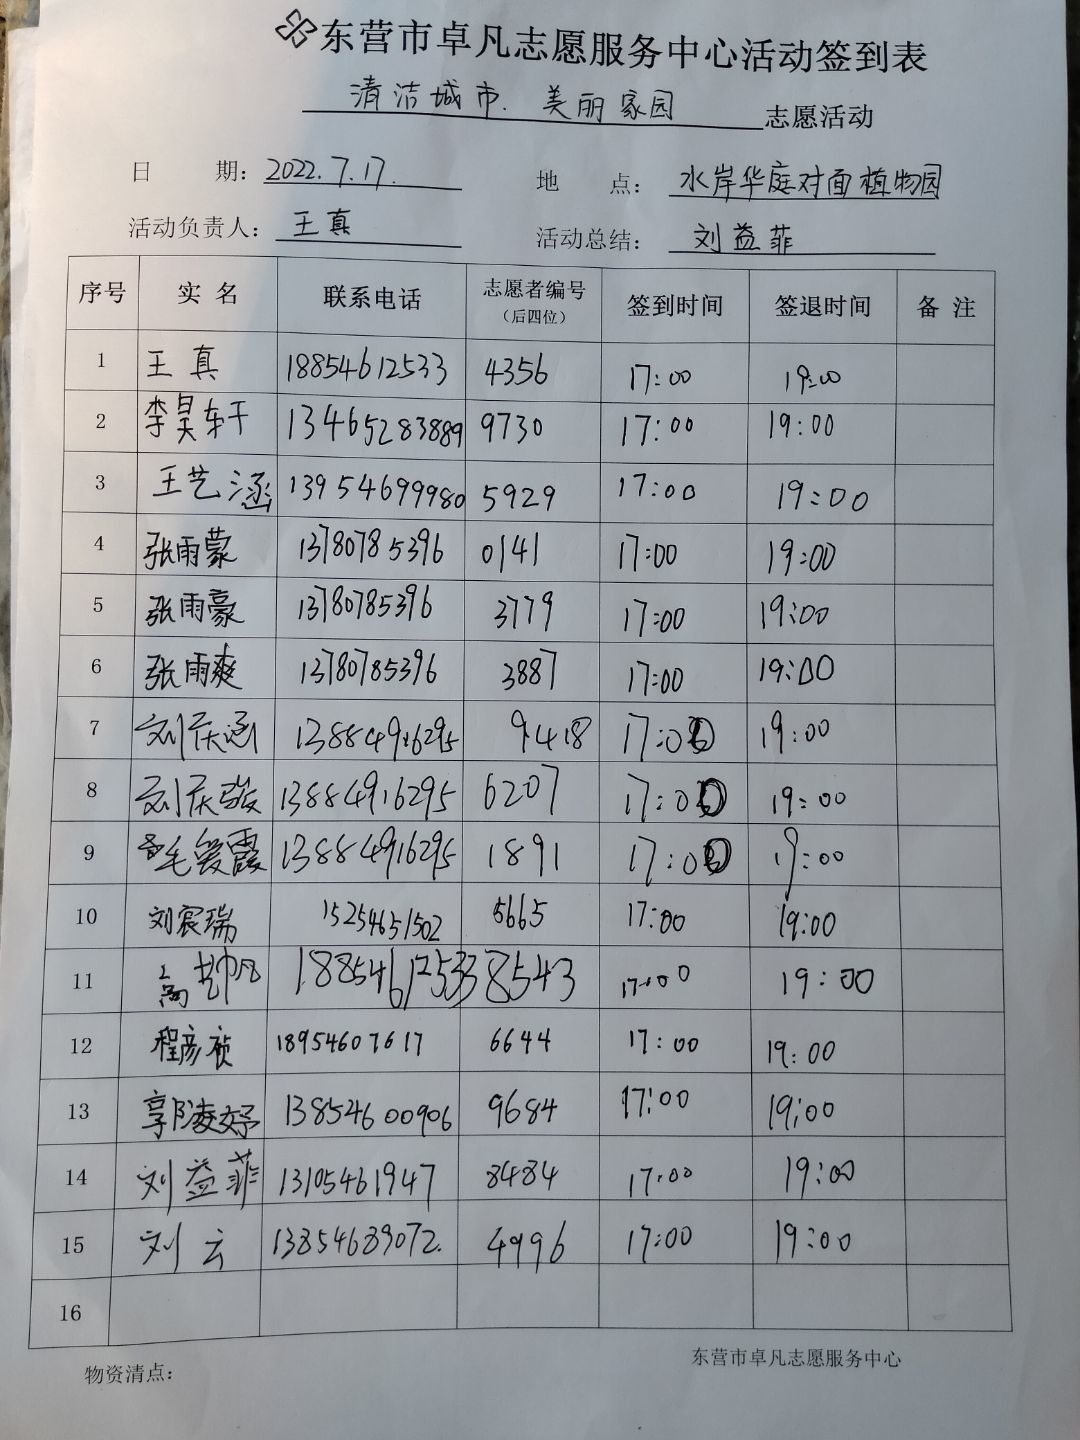 东营市卓凡志愿服务中心活动签到表
清洁城市.美丽家园 志愿活动
日 期: 2022.7.17. 地 点: 水岸华庭对面植物园
活动负责人: 王真 活动总结: 刘益菲
序号 实名 联系电话 志愿者编号(后四位) 签到时间 签退时间 备注
1 王真 18854612533 4356 17:00 19:00
2 李昊轩 13465283889 9730 17:00 19:00
3 王艺涵 13954699980 5929 17:00 19:00
4 张雨蒙 13780785396 0141 17:00 19:00
5 张雨豪 13780785396 3779 17:00 19:00
6 张雨爽 13780785396 3887 17:00 19:00
7 刘庆涵 13884916295 9418 17:00 19:00
8 刘庆 13884916295 6207 17:00 19:00
9 毛爱霞 13884916295 1891 17:00 19:00
10 刘宸瑞 15254651502 5665 17:00 19:00
11 高 18854612533 8543 17:00 19:00
12 程彦祯 18954607617 6644 17:00 19:00
13 郭凌妤 13854600906 9684 17:00 19:00
14 刘益菲 13105461947 8484 17:00 19:00
15 刘云 13854689072. 4996 17:00 19:00
16
物资清点: 东营市卓凡志愿服务中心